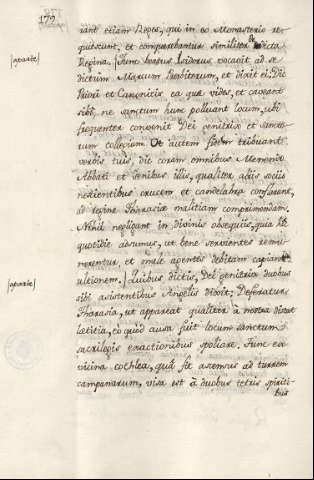 179
rant etiam Reges, qui in eo Monasterio re-
quiescunt, et comparebantur similiter dicta
Regina. | Tunc Beatus Isidorus vocavit ad se
|aparte|
dictum Marcum Presbiterum, et dixit ei: Dic
Priori et Canonicis ea quæ vides, et caveant
sibi, ne sanctum hunc polluant locum, ubi
frequenter convenit Dei genitrix et sancto-
rum collegium. Ut autem fidem tribuant
verbis tuis, dic coram omnibus Menendo
Abbati et senibus illis, qualiter aliis sociis
nescientibus crucem et candelabra
ad regine Tharasiæ malitiam comprimendam.
Nihil negligant in divinis obsequiis, quia hic
quotidie adsumus, ut bene servientes remu-
nerentur, et male agentes debitam capiant
ultionem. | Quibus dictis, Dei genitrix duobus
|aparte|
sibi asistentibus Angelis dixit: Deferatur
Tharasia, ut appareat qualiter à nostra distat
lætitia, eò quòd ausa fuit locum sanctum
sacrilegis exactionibus spoliare. Tunc ex
vicina cochlea, quà fit ascensus ad turrem
campanarum, visa est à duobus tetris spiriti-
bus